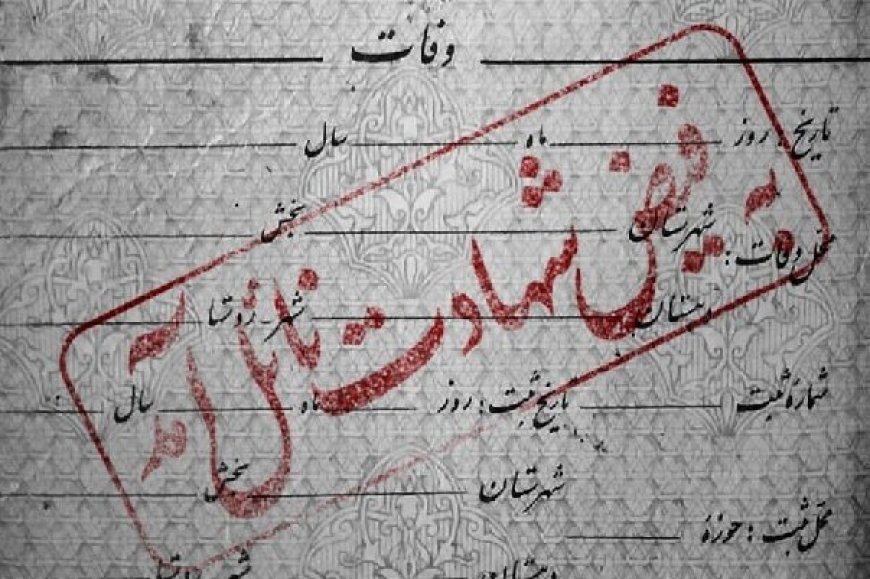 وفات
تاریخ : روز ماه سال
محل وفات : شهرستان بخش
دهستان شهر - روستا
شمارهٔ ثبت تاریخ ثبت : روز ماه سال
محل ثبت : حوزهٔ شهرستان بخش
دهستان شهر - روستا
به فیض شهادت نائل آمد